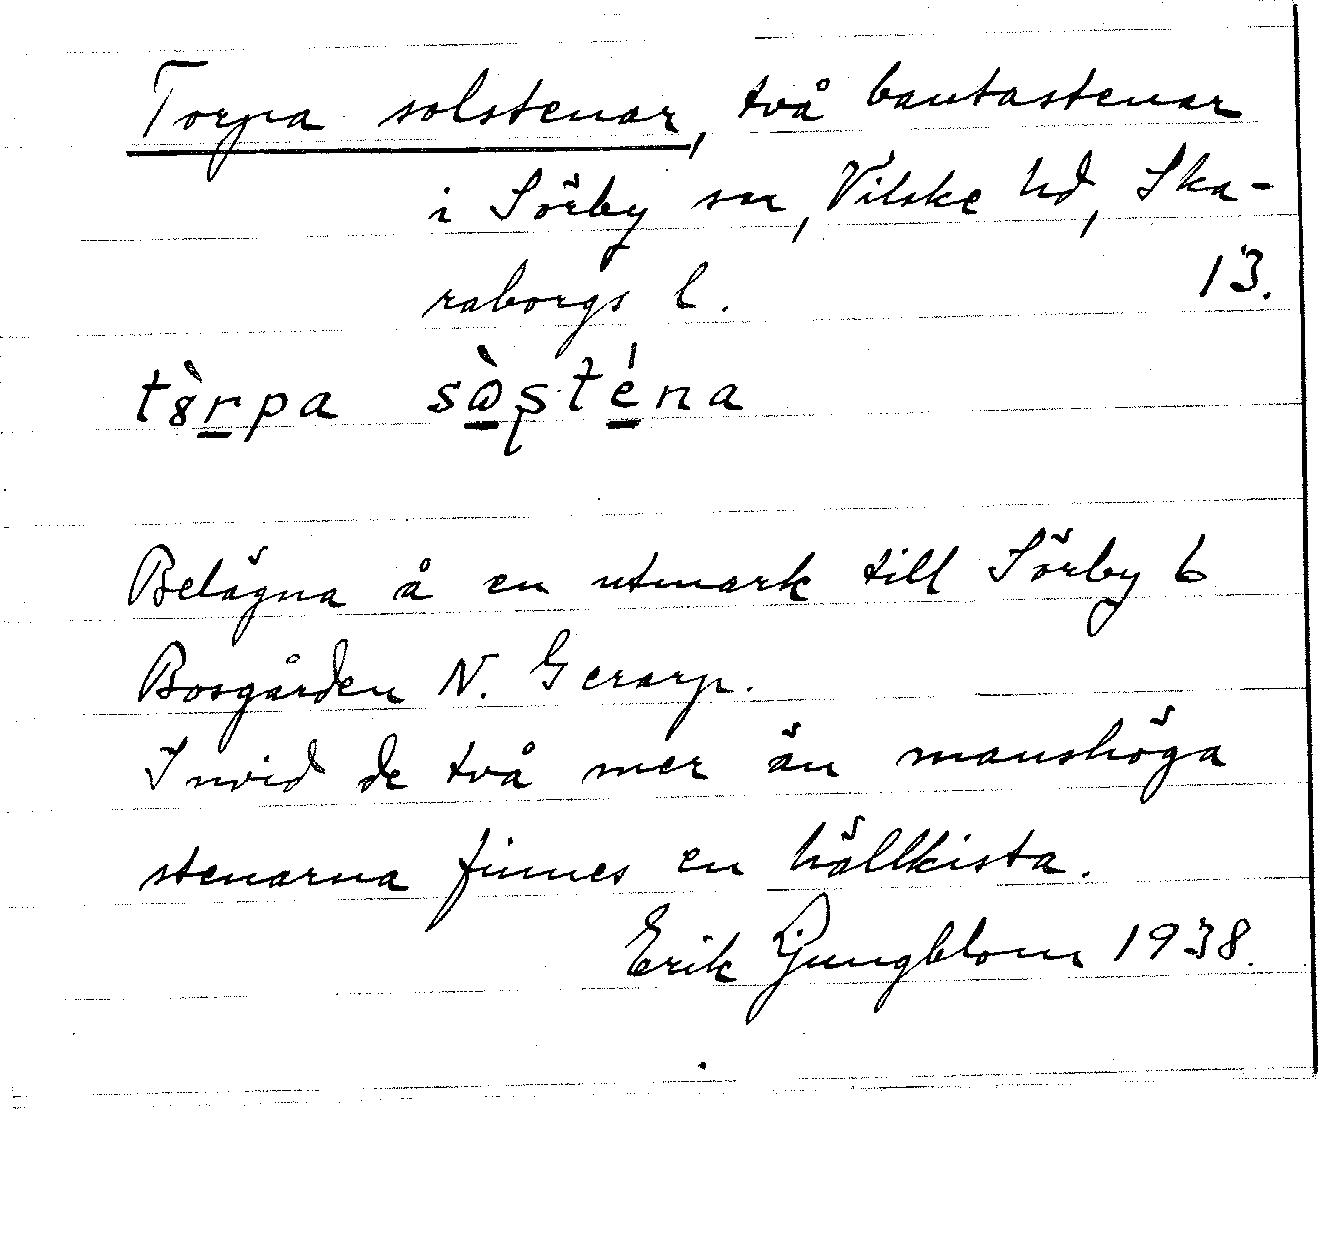 Torpa solstenar, två bautastenar
i Sörby sn, Vilske hd, Ska-
raborgs l. 13.
t8̀rpa sὼşténa
Belägna å en utmark till Sörby 6
Bosgården N. Gerarp.
Invid de två mer än manshöga
stenarna finnes en hällkista.
Erik Ljungblom 1938.